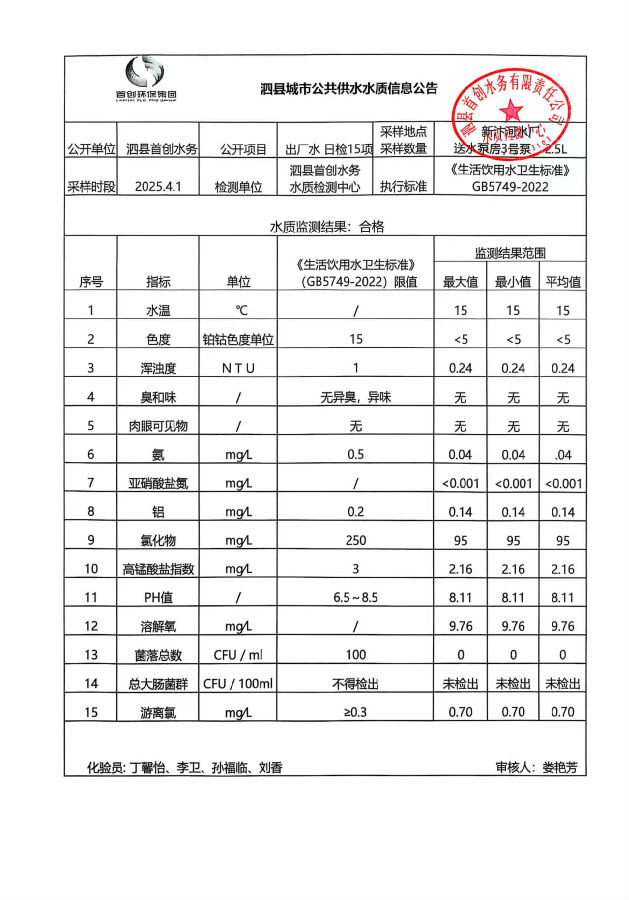 首创环保集团
CAPITAL ECO-PRO GROUP
泗县城市公共供水水质信息公告
泗县首创水务有限责任公司
水质检测中心
公开单位 泗县首创水务 公开项目 出厂水 日检15项 采样地点 采样数量 新汴河水厂 送水泵房3号泵 2.5L
采样时段 2025.4.1 检测单位 泗县首创水务 水质检测中心 执行标准 《生活饮用水卫生标准》 GB5749-2022
水质监测结果：合格
序号 指标 单位 《生活饮用水卫生标准》（GB5749-2022）限值 监测结果范围
最大值 最小值 平均值
1 水温 ℃ / 15 15 15
2 色度 铂钴色度单位 15 <5 <5 <5
3 浑浊度 NTU 1 0.24 0.24 0.24
4 臭和味 / 无异臭，异味 无 无 无
5 肉眼可见物 / 无 无 无 无
6 氨 mg/L 0.5 0.04 0.04 .04
7 亚硝酸盐氮 mg/L / <0.001 <0.001 <0.001
8 铝 mg/L 0.2 0.14 0.14 0.14
9 氯化物 mg/L 250 95 95 95
10 高锰酸盐指数 mg/L 3 2.16 2.16 2.16
11 PH值 / 6.5～8.5 8.11 8.11 8.11
12 溶解氧 mg/L / 9.76 9.76 9.76
13 菌落总数 CFU / ml 100 0 0 0
14 总大肠菌群 CFU / 100ml 不得检出 未检出 未检出 未检出
15 游离氯 mg/L ≥0.3 0.70 0.70 0.70
化验员: 丁馨怡、李卫、孙福临、刘香 审核人：娄艳芳